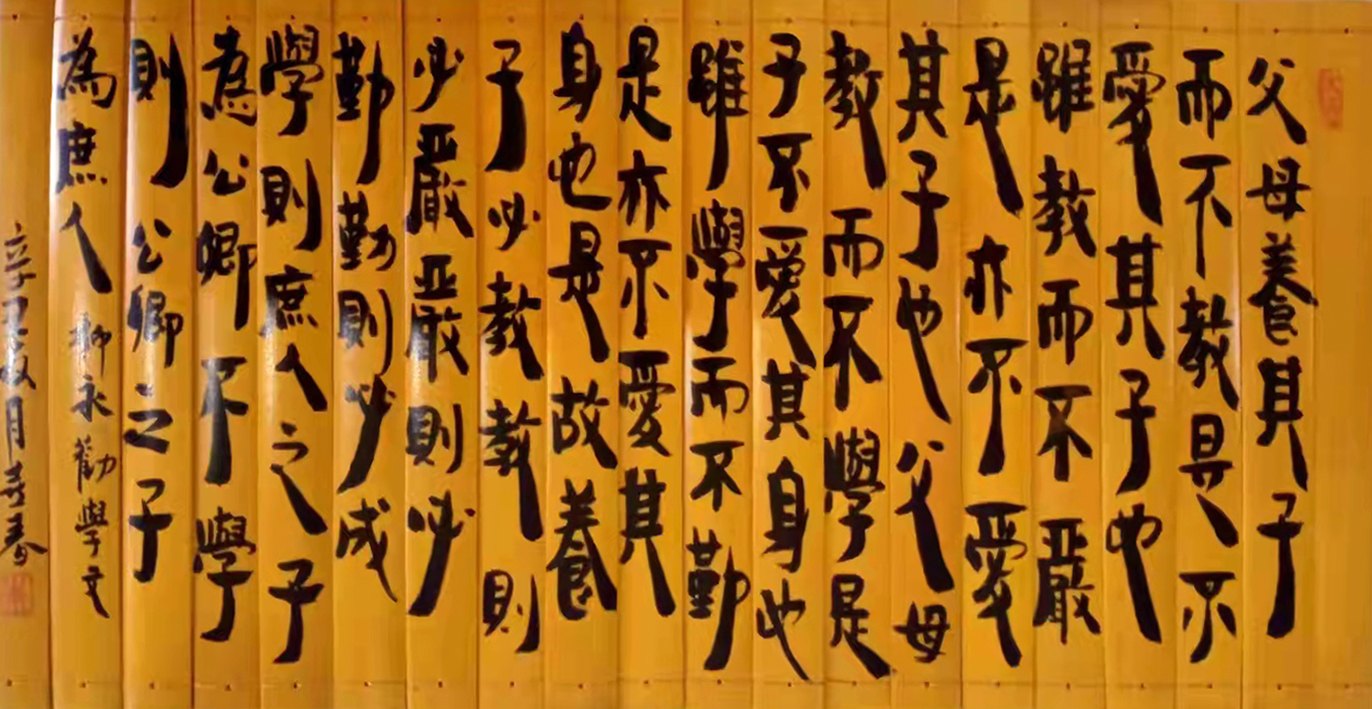 父母養其子
而不教是不
愛其子也
雖教而不嚴
是亦不愛
其子也父母
教而不學是
子不愛其身也
雖學而不勤
是亦不愛其
身也是故養
子必教教則
必嚴嚴則必
勤勤則必成
學則庶人之子
為公卿不學
則公卿之子
為庶人 柳永勸學文
辛卯 月 春